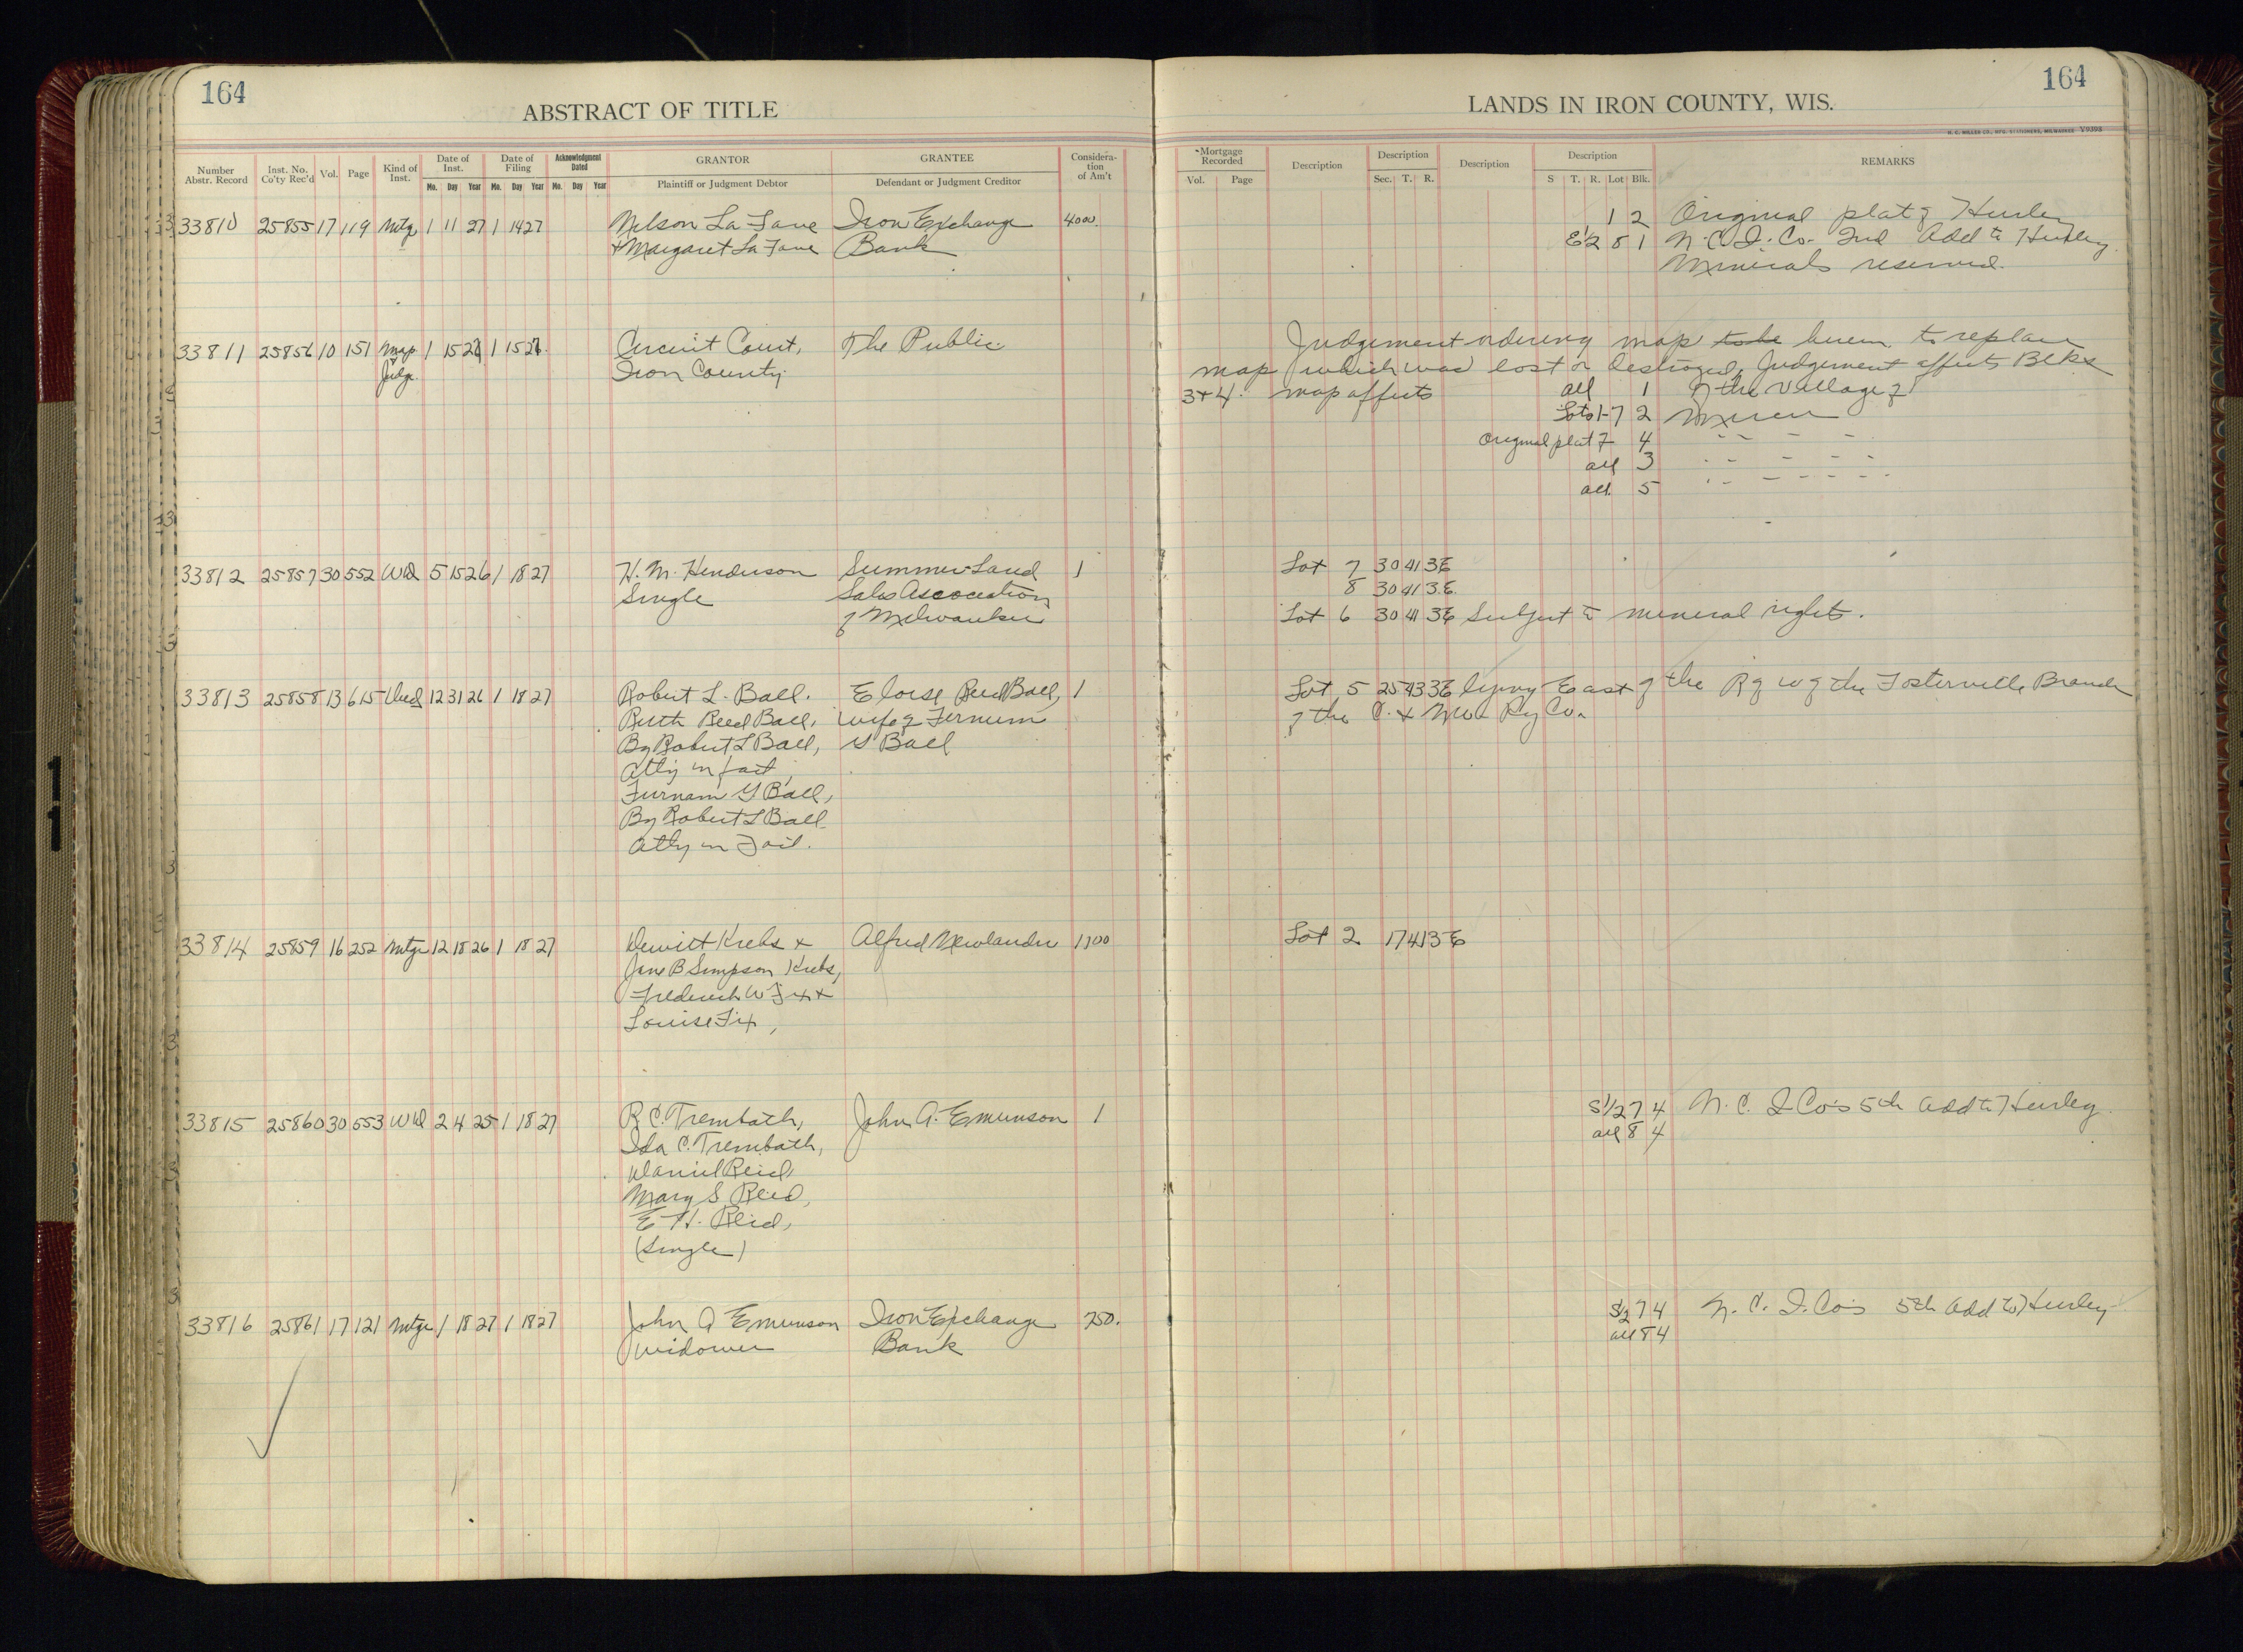 164
ABSTRACT OF TITLE
Number Abstr. Record | Inst. No. Co'ty Rec'd | Vol. | Page | Kind of Inst. | Date of Inst. Mo. Day Year | Date of Filing Mo. Day Year | Acknowledgment Dated Mo. Day Year | GRANTOR Plaintiff or Judgment Debtor | GRANTEE Defendant or Judgment Creditor | Considera-tion of Am't
33810 25855 17 119 Mtge 1 11 27 1 14 27 Nelson La Fave Iron Exchange 4000.
+ Margaret La Fave Bank
33811 25856 10 151 Map 1 15 27 1 15 27. Circuit Court, The Public
Judge. Iron County
33812 25857 30 552 WD 5 15 26 1 18 27 H. M. Henderson Summer Land 1
Single Sales Association
of Milwaukee
33813 25858 13 615 Deed 12 31 26 1 18 27 Robert L. Ball. Eloise Reed Ball, 1
Ruth Reed Ball, wife of Furnum
By Robert L Ball, G Ball
Atty in fact,
Furnam G Ball,
By Robert L Ball
Atty in Fact.
33814 25859 16 252 Mtge 12 18 26 1 18 27 Dewitt Krebs + Alfred Newlander 1100
Jane B Simpson Krebs,
Frederick W Fix +
Louise Fix,
33815 25860 30 553 WD 2 4 25 1 18 27 R. C. Trembath, John A. Emunson 1
Ida C. Trembath,
Daniel Reid,
Mary S Reid,
E H. Reid,
(Single)
33816 25861 17 121 Mtge 1 18 27 1 18 27 John A Emunson Iron Exchange 750.
widower Bank
164
LANDS IN IRON COUNTY, WIS.
H. C. MILLER CO., MFG. STATIONERS, MILWAUKEE V9398
Mortgage Recorded Vol. Page | Description | Description Sec. T. R. | Description | Description S T. R. Lot Blk. | REMARKS
1 2 Original plat of Hurley
E½ 8 1 N. C. I. Co. 2nd Add to Hurley.
Minerals reserved.
Judgement ordering map to be herein to replace
map which was lost or destroyed, Judgement affects Blks
3 + 4. map affects all 1 of the Village of
Lots 1-7 2
Original plat 7 4 " " " "
all 3 " " " " "
all 5 " " " " "
Lot 7 30 41 3E
8 30 41 3 E.
Lot 6 30 41 3E Subject to mineral rights.
Lot 5 25 43 3E lying East of the R of W of the Fosterville Branch
of the C. + NW Ry Co.
Lot 2 17 41 3 E
S½ 7 4 N. C. I Co's 5th Add to Hurley.
all 8 4
S½ 7 4 N. C. I. Co's 5th Add to Hurley
all 8 4